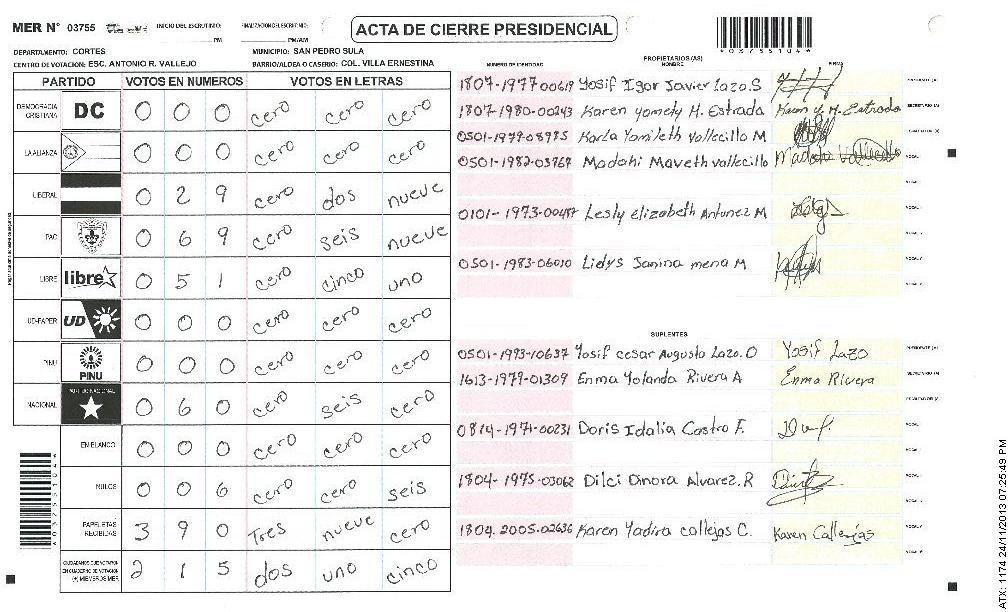 MER N° 03755 INICIO DEL ESCRUTINIO: PM FINALIZACION DEL ESCRUTINIO: PM/AM
ACTA DE CIERRE PRESIDENCIAL
*0375510A*
DEPARTAMENTO: CORTES MUNICIPIO: SAN PEDRO SULA
CENTRO DE VOTACION: ESC. ANTONIO R. VALLEJO BARRIO/ALDEA O CASERIO: COL. VILLA ERNESTINA
PARTIDO VOTOS EN NUMEROS VOTOS EN LETRAS
DEMOCRACIA CRISTIANA DC 0 0 0 cero cero cero
LA ALIANZA 0 0 0 cero cero cero
LIBERAL 0 2 9 cero dos nueve
PAC 0 6 9 cero seis nueve
LIBRE libre 0 5 1 cero cinco uno
UD-FAPER UD 0 0 0 cero cero cero
PINU PINU 0 0 0 cero cero cero
NACIONAL PARTIDO NACIONAL 0 6 0 cero seis cero
EN BLANCO 0 0 0 cero cero cero
NULOS 0 0 6 cero cero seis
PAPELETAS RECIBIDAS 3 9 0 Tres nueve cero
CIUDADANOS QUE VOTARON EN CUADERNO DE VOTACION (+) MIEMBROS MER 2 1 5 dos uno cinco
PROPIETARIOS (AS)
NUMERO DE IDENTIDAD NOMBRE FIRMA
1807-1977-00619 Yosif Igor Javier Lazo.S PRESIDENTE (A)
1807-1980-00243 Karen Yomety H. Estrada Karen Y. H. Estrada SECRETARIO (A)
0501-1979-08985 Karla Yamileth Vallecillo M
0501-1982-03767 Madahi Maveth Vallecillo VOCAL
0101-1973-00487 Lesly elizabeth Antunez M
0501-1983-06010 Lidys Janina mena M
SUPLENTES
0501-1993-10637 Yosif cesar Augusto Lazo.O Yosif Lazo PRESIDENTE (A)
1613-1979-01309 Enma Yolanda Rivera A Enma Rivera SECRETARIO (A)
0814-1971-00231 Doris Idalia Castro F.
1804-1975-03062 Dilci Dinora Alvarez.R
1804-2005-02636 Karen Yadira callejas C. Karen Callejas
ATX: 1174 24/11/2013 07:25:49 PM